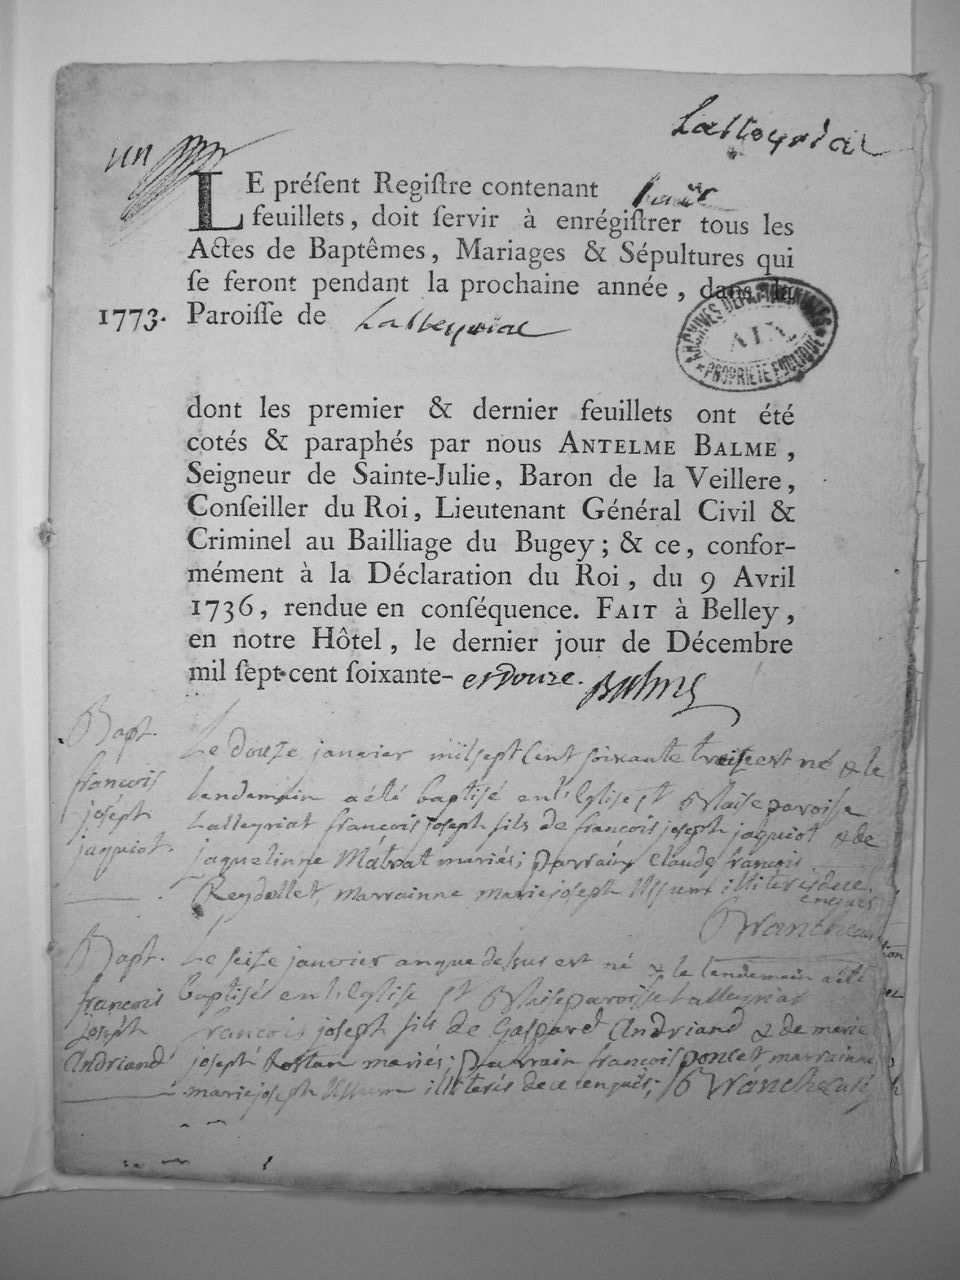 Lalleyriat
un
LE préſent Regiſtre contenant
feuillets, doit ſervir à enrégiſtrer tous les
Actes de Baptêmes, Mariages & Sépultures qui
ſe feront pendant la prochaine année, dans la
1773. Paroiſſe de Lalleyriat
ARCHIVES DEPARTEMENTALES
AIN
PROPRIETE PUBLIQUE
dont les premier & dernier feuillets ont été
cotés & paraphés par nous ANTELME BALME,
Seigneur de Sainte-Julie, Baron de la Veillere,
Conſeiller du Roi, Lieutenant Général Civil &
Criminel au Bailliage du Bugey; & ce, confor-
mément à la Déclaration du Roi, du 9 Avril
1736, rendue en conſéquence. FAIT à Belley,
en notre Hôtel, le dernier jour de Décembre
mil ſept cent ſoixante- et Douze. Balme
Bapt.
françois
joseph
jaquiot.
Le douze janvier mil sept cent soixante treize est né & le
lendemain a été baptisé en l'Eglise St Blaise paroisse
Lalleyriat françois joseph fils de françois joseph jaquiot & de
jaquelinne Matrat mariés; parrain Claude françois
Reydellet, marrainne marie joseph illiterés de ce
enquis
Bapt.
françois
joseph
Andriand
Le seize janvier an que dessus est né & le lendemain a été
baptisés en l'Eglise St Blaise paroisse Lalleyriat
francois joseph fils de Gaspard Andriand & de marie
joseph mariés; parrain françois poncet marrainne
marie joseph illiterés de ce enquis;